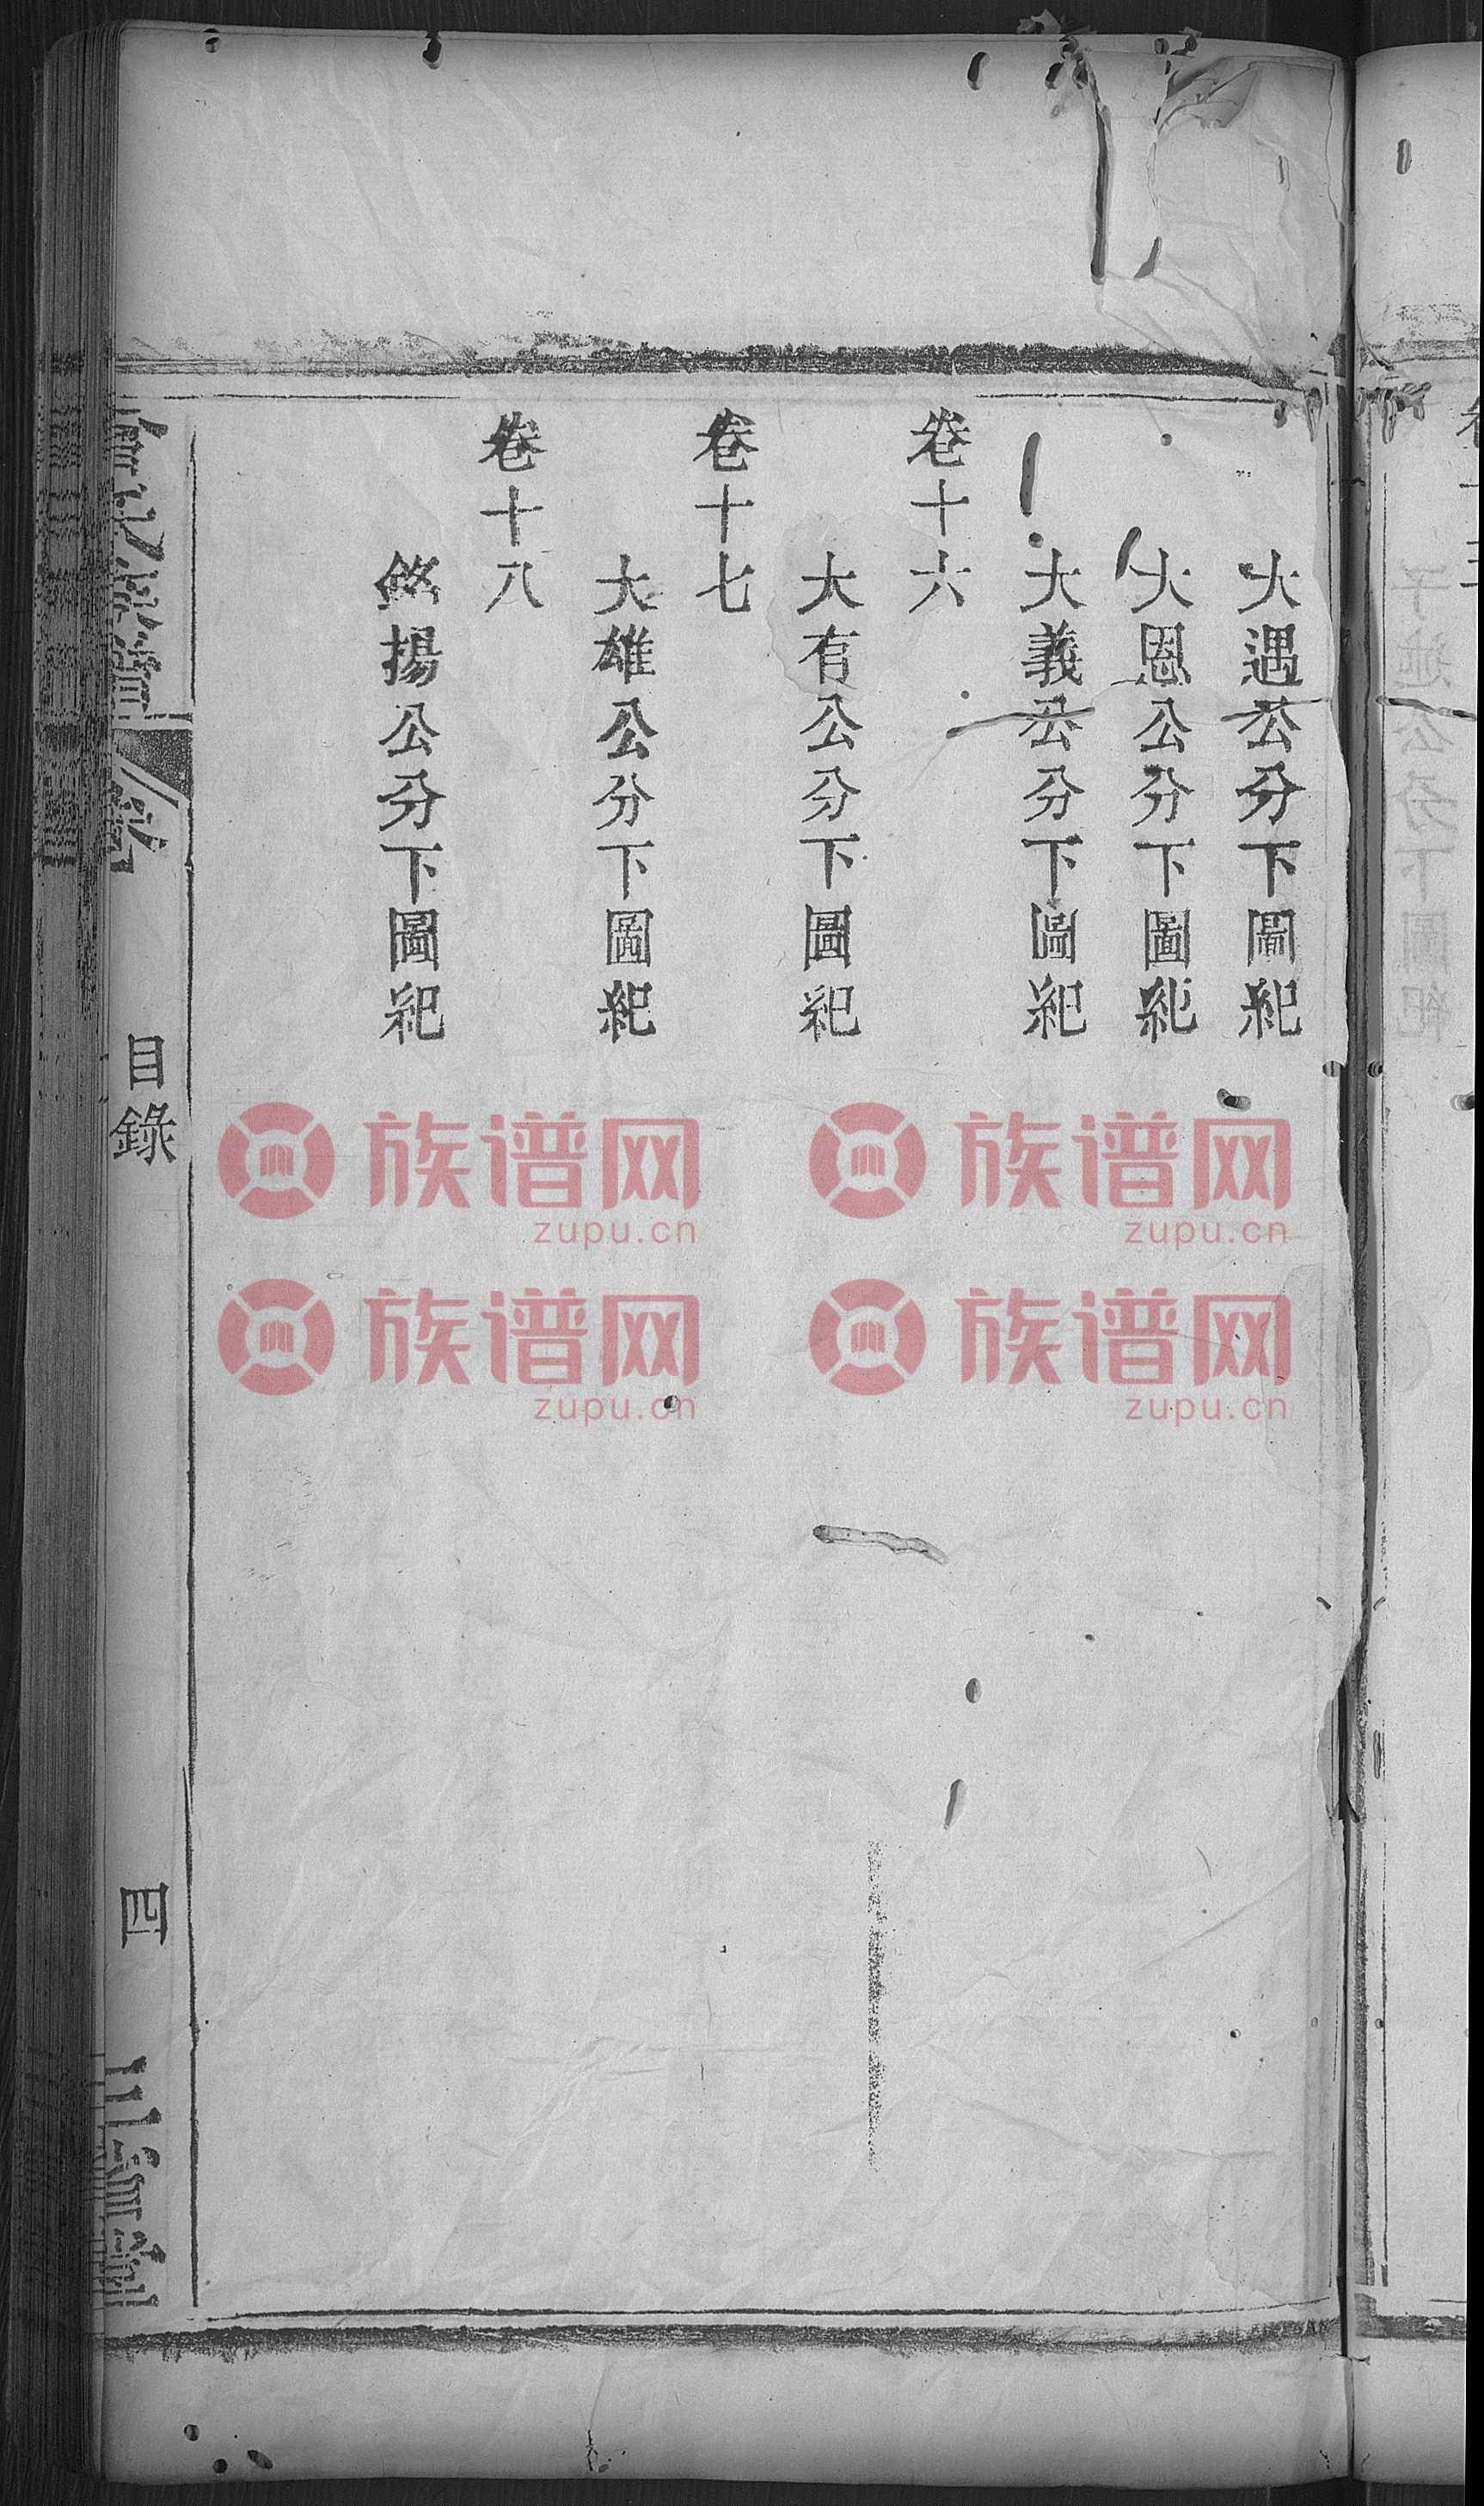 大遇公分下圖紀
大恩公分下圖紀
大義公分下圖紀
卷十六
大有公分下圖紀
卷十七
大雄公分下圖紀
卷十八
銘揚公分下圖紀
目錄
四
族谱网
zupu.cn
族谱网
zupu.cn
族谱网
zupu.cn
族谱网
zupu.cn